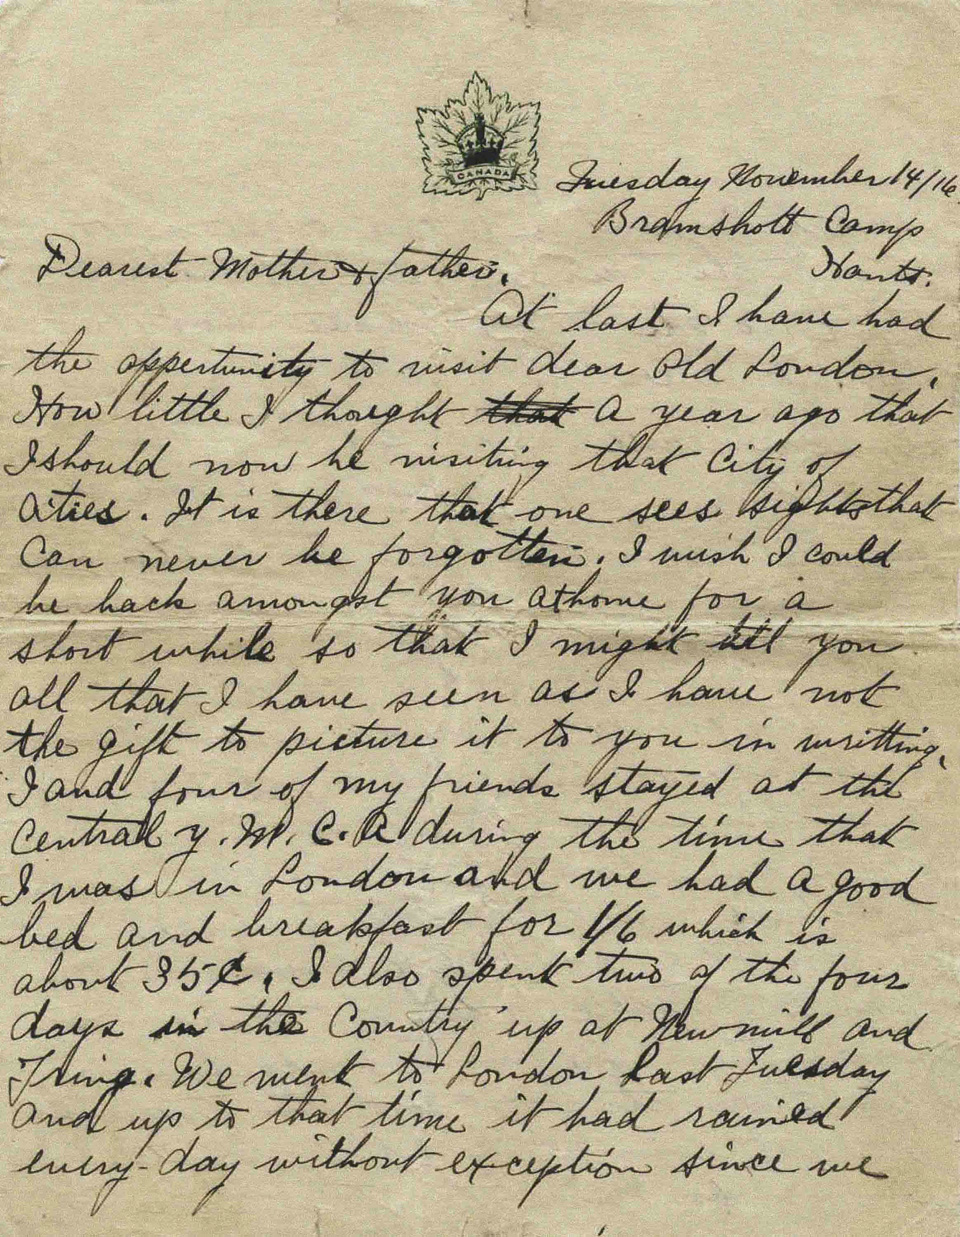 CANADA
Tuesday November 14/16
Bramshott Camp
Hants.
Dearest Mother & father.
At last I have had
the oppertunity to visit dear old London.
How little I thought that a year ago that
I should now be visiting that City of
Cities. It is there that one sees sights that
can never be forgotten. I wish I could
be back amongst you at home for a
short while so that I might tell you
all that I have seen as I have not
the gift to picture it to you in writting.
I and four of my friends stayed at the
Central Y. M. C. A during the time that
I was in London and we had a good
bed and breakfast for 1/6 which is
about 35¢. I also spent two of the four
days in the Country up at New mill and
Tring. We went to London last Tuesday
and up to that time it had rained
every-day without exception since we